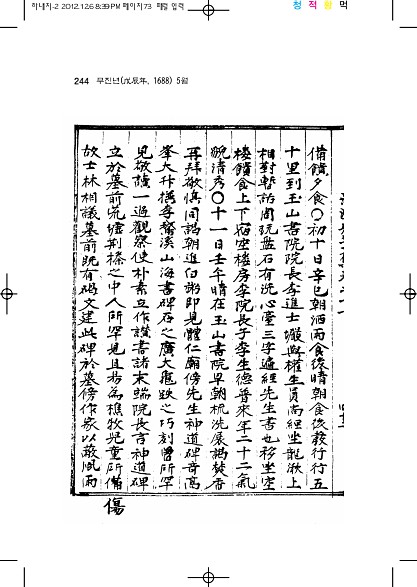 하내지-2 2012.12.6 8:39 PM 페이지73 패컴 입력
청 적 황 먹
244 무진년(戊辰年, 1688) 5월
備饋夕食〇初十日辛巳朝洒雨食後晴朝食後發行行五
十里到玉山書院院長李進士 與權生員尚經坐龍湫上
相對暫話周玩盤石有洗心臺三字退經先生書也移坐空
樓饋食上下宿空樓房李院長子李生德普來年二十二氣
貌清秀〇十一日壬午晴在玉山書院早朝梳洗展謁焚香
再拜敬慎同謁朝進白粥卽見體仁廟傍先生神道碑奇高
峯大升撰李鵝溪山海書碑石之廣大龜趺之巧刻曾所罕
見敬讀一過觀察使朴素立作讚書諸末端院長言神道碑
立於墓前荒墟荆榛之中人所罕見且易爲樵牧兒童所備
故士林相議墓前既有碣文建此碑於墓傍作家以蔽風雨
傷